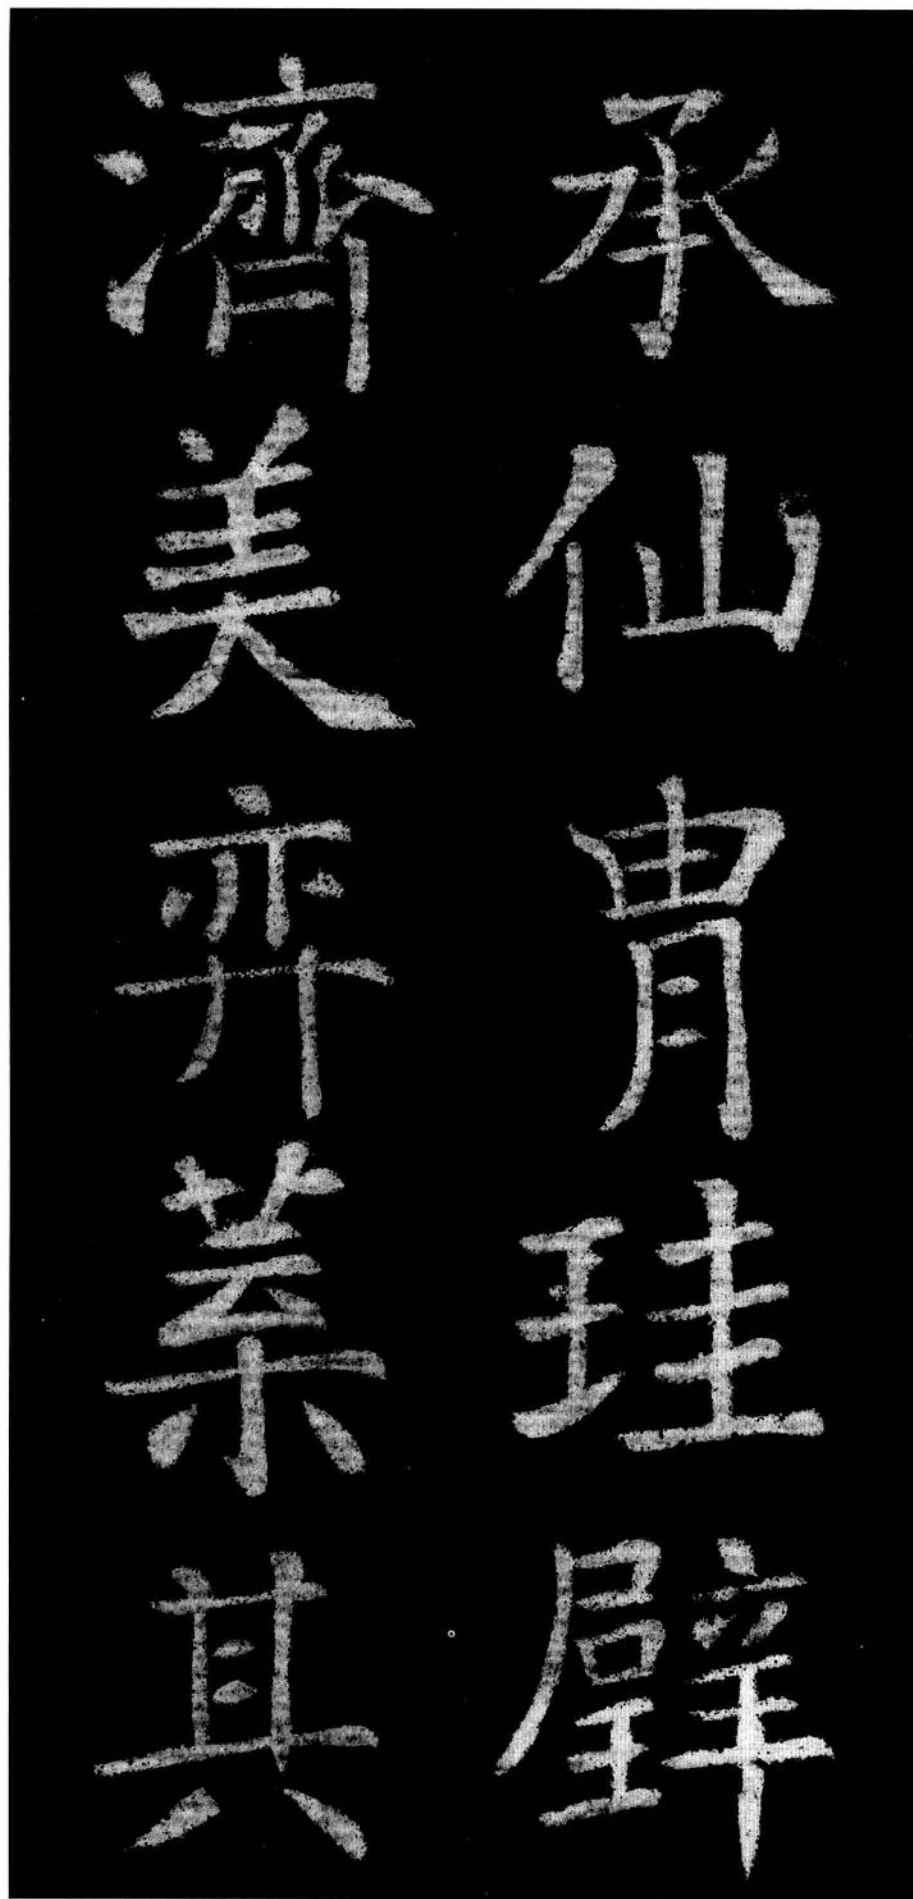 承仙冑珪璧
濟美弈葉其